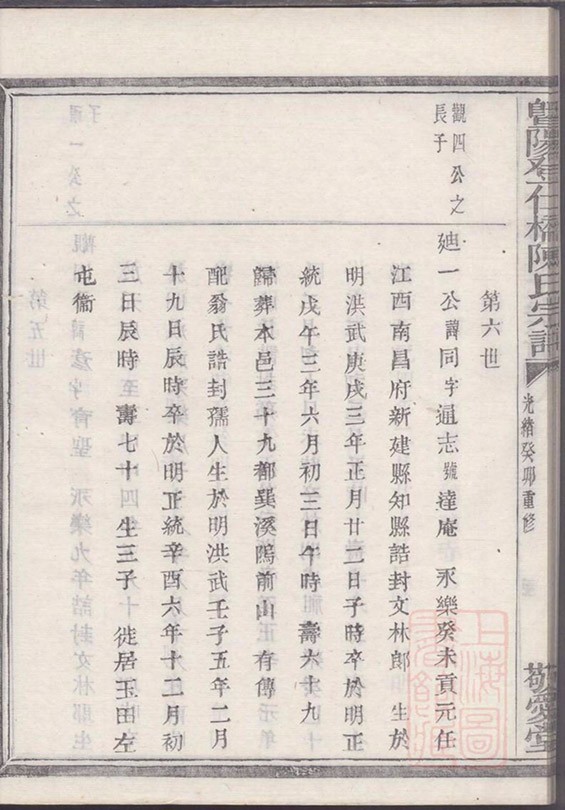 暨陽
仁橋陳氏宗譜
光緒癸卯重修
敬愛堂
第六世
觀四公之
長子
廸一公諱同字通志號達庵 永樂癸未貢元任
江西南昌府新建縣知縣誥封文林郎 生於
明洪武庚戌三年正月廿二日子時卒於明正
統戊午三年六月初三日午時 壽六十九
歸葬本邑三十九都巽溪隖前山 有傳
配翁氏誥封孺人生於明洪武壬子五年二月
十九日辰時卒於明正統辛酉六年十二月初
三日辰時 壽七十 生三子 徙居玉田左
屯衞